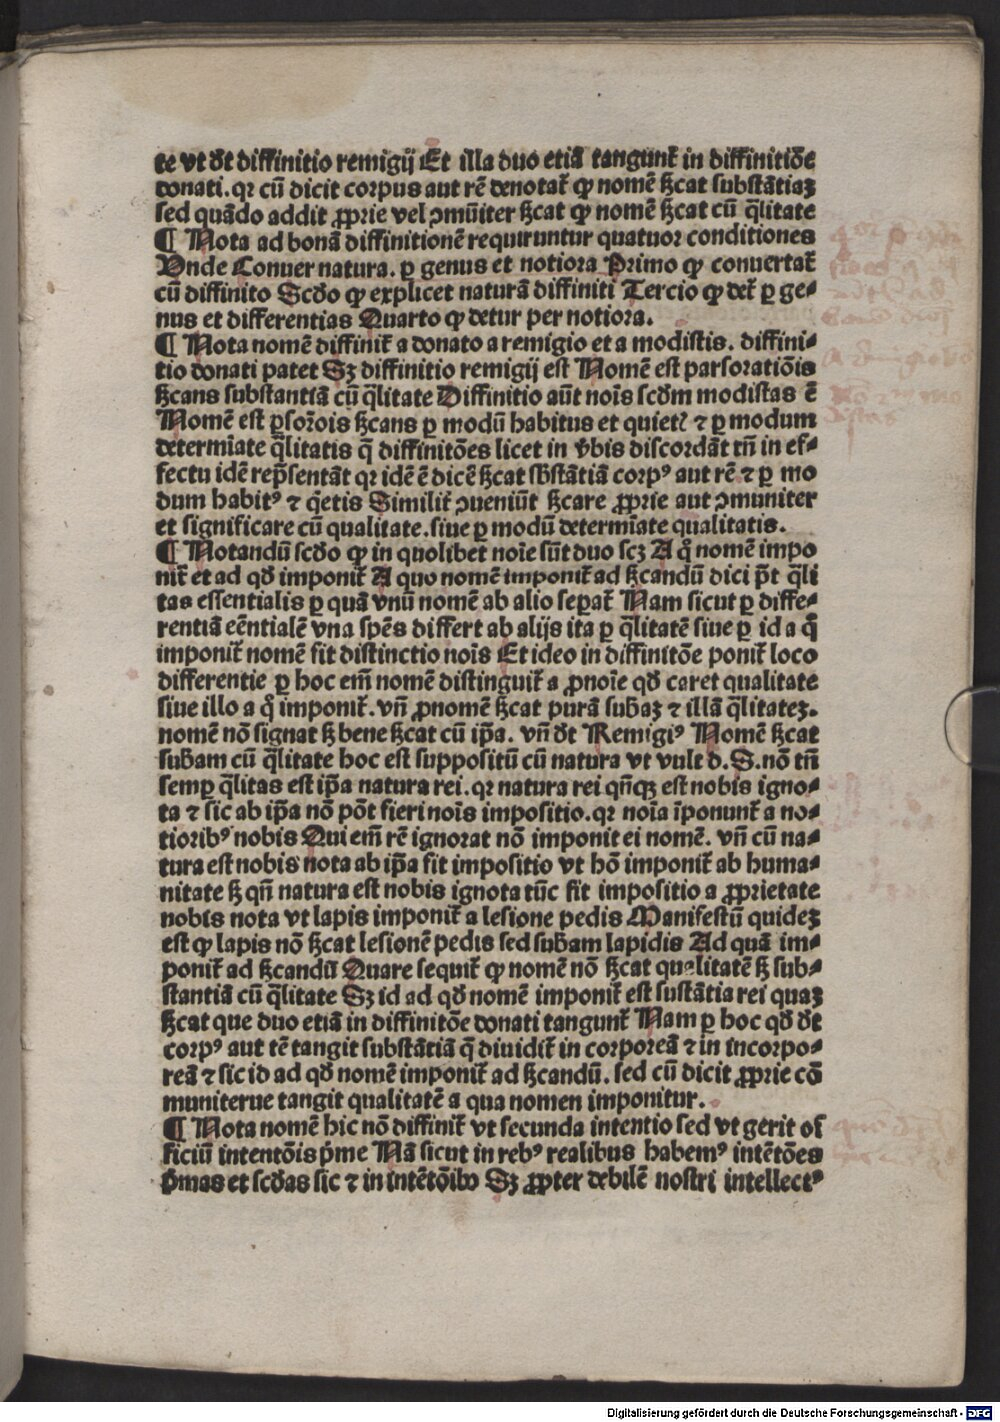 te vt dꝛ diffinitio remigij Et illa duo etiā tangunt̃ in diffinitiōe
donati. qꝛ cū dicit corpus aut rē denotat̃ ꝙ nomē ẜcat substātiaꝫ
sed quādo addit ꝓprie vel ↄmūiter ẜcat ꝙ nomē ẜcat cū q̄litate
¶ Nota ad bonā diffinitionē requiruntur quatuor conditiones
Vnde Conuer natura. ꝑ genus et notiora Primo ꝙ conuertat̃
cū diffinito Scd̄o ꝙ explicet naturā diffiniti Tercio ꝙ det̃ ꝑ ge⸗
nus et differentias Quarto ꝙ detur per notiora.
¶ Nota nomē diffinit̃ a donato a remigio et a modistis. diffini⸗
tio donati patet Sꝫ diffinitio remigij est Nomē est pars oratiōis
ẜcans substantiā cū q̄litate Diffinitio aūt nois̄ scd̄m modistas ē
Nomē est ꝑs or̄ois ẜcans ꝑ modū habitus et quietꝭ ⁊ ꝑ modum
determīate q̄litatis q̄ diffinitōes licet in v̄bis discordāt tn̄ in ef⸗
fectu idē rep̄sentāt qꝛ idē ē dicē ẜcat sb̄stātiā corpꝰ aut rē ⁊ ꝑ mo
dum habitꝰ ⁊ q̄etis Similit̃ ↄueniūt ẜcare ꝓprie aut ↄmuniter
et significare cū qualitate. siue ꝑ modū determīate qualitatis.
¶ Notandū scd̄o ꝙ in quolibet noīe sūt duo scꝫ A q̊ nomē impo
nit̃ et ad qd̄ imponit̃ A quo nomē imponit̃ ad ẜcandū dici pt̄ q̄li
tas essentialis ꝑ quā vnū nomē ab alio seꝑat̃ Nam sicut ꝑ diffe⸗
rentiā eēntialē vna spēs differt ab alijs ita ꝑ q̄litatē siue ꝑ id a q̊
imponit̃ nomē fit distinctio nois̄ Et ideo in diffinitōe ponit̃ loco
differentie ꝑ hoc em̄ nomē distinguit̃ a ꝓnoīe qd̄ caret qualitate
siue illo a q̊ imponit̃. vn̄ ꝓnomē ẜcat purā sub̄aꝫ ⁊ illā q̄litateꝫ.
nomē nō signat ẜꝫ bene ẜcat cū ip̄a. vn̄ dꝛ Remigiꝰ Nomē ẜcat
sub̄am cū q̄litate hoc est suppositū cū natura vt vult d. S. nō tn̄
semꝑ q̄litas est ip̄a natura rei. qꝛ natura rei qn̄qꝫ est nobis igno⸗
ta ⁊ sic ab ip̄a nō pōt fieri nois̄ impositio. qꝛ noīa īponunt̃ a no⸗
tioribꝰ nobis Qui em̄ rē ignorat nō imponit ei nomē. vn̄ cū na⸗
tura est nobis nota ab ip̄a fit impositio vt hō imponit̃ ab huma⸗
nitate ẜꝫ qn̄ natura est nobis ignota tūc fit impositio a ꝓprietate
nobis nota vt lapis imponit̃ a lesione pedis Manifestū quideꝫ
est ꝙ lapis nō ẜcat lesionē pedis sed sub̄am lapidis Ad quā im⸗
ponit̃ ad ẜcandū Quare sequit̃ ꝙ nomē nō ẜcat qualitatē ẜꝫ sub⸗
stantiā cū q̄litate Sꝫ id ad qd̄ nomē imponit̃ est sustātia rei quaꝫ
ẜcat que duo etiā in diffinitōe donati tangunt̃ Nam ꝑ hoc qd̄ dꝛ
corpꝰ aut rē tangit substātiā q̄ diuidit̃ in corporeā ⁊ in incorpo⸗
reā ⁊ sic id ad qd̄ nomē imponit̃ ad ẜcandū. sed cū dicit ꝓprie cō
muniterue tangit qualitatē a qua nomen imponitur.
¶ Nota nomē hic nō diffinit̃ vt secunda intentio sed vt gerit of
ficiū intentōis p̄me Nā sicut in rebꝰ realibus habemꝰ intētōes
p̄mas et scd̄as sic ⁊ in intētōibꝰ Sꝫ ꝓpter debilē nostri intellectꝰ
Digitalisierung gefördert durch die Deutsche Forschungsgemeinschaft - DFG